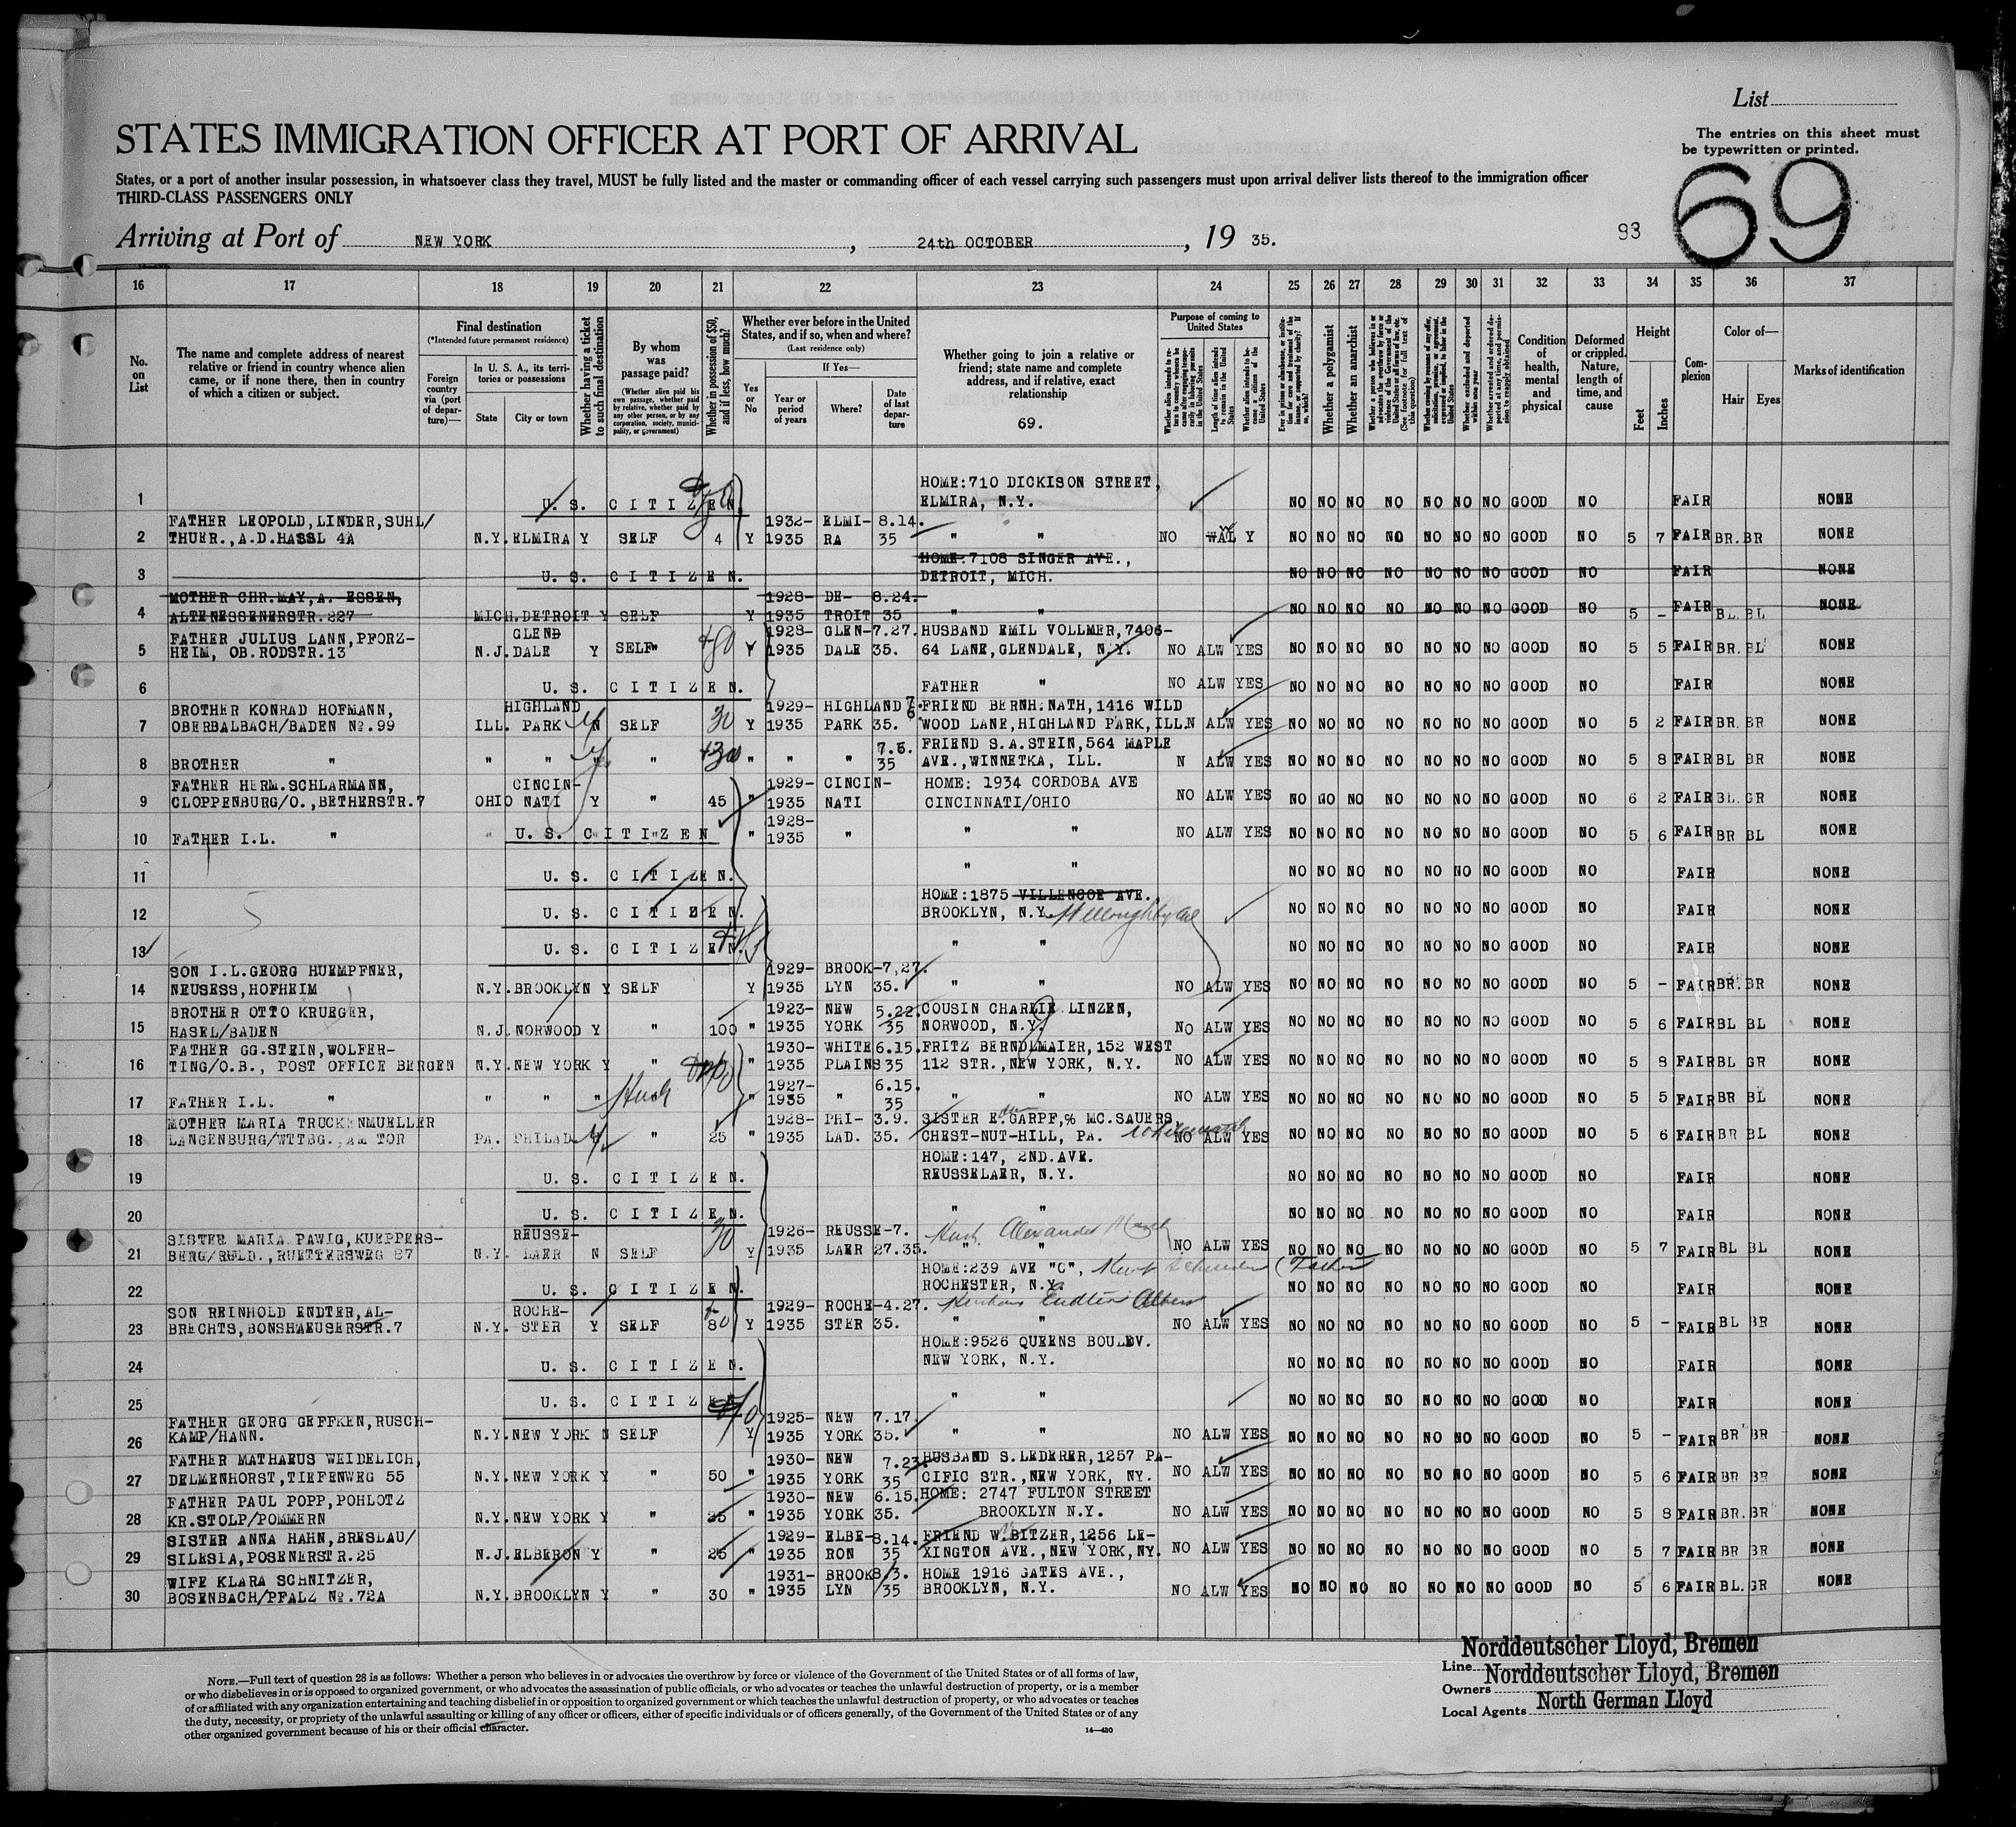 List
STATES IMMIGRATION OFFICER AT PORT OF ARRIVAL
The entries on this sheet must
be typewritten or printed.
States, or a port of another insular possession, in whatsoever class they travel, MUST be fully listed and the master or commanding officer of each vessel carrying such passengers must upon arrival deliver lists thereof to the immigration officer
THIRD-CLASS PASSENGERS ONLY
69
Arriving at Port of NEW YORK, 24th OCTOBER, 19 35.
93
16 17 18 19 20 21 22 23 24 25 26 27 28 29 30 31 32 33 34 35 36 37
No. on List
The name and complete address of nearest relative or friend in country whence alien came, or if none there, then in country of which a citizen or subject.
Final destination
(*Intended future permanent residence)
Foreign country via (port of departure)—
In U. S. A., its territories or possessions
State City or town
Whether having a ticket to such final destination
By whom was passage paid?
(Whether alien paid his own passage, whether paid by relative, whether paid by any other person, or by any corporation, society, municipality, or government)
Whether in possession of $50, and if less, how much?
Whether ever before in the United States, and if so, when and where?
(Last residence only)
Yes or No
If Yes—
Year or period of years Where? Date of last departure
Whether going to join a relative or friend; state name and complete address, and if relative, exact relationship
69.
Purpose of coming to United States
Length of time alien intends to remain in the United States
Whether alien intends to become a citizen of the United States
Whether a polygamist
Whether an anarchist
Whether excluded and deported within one year
Condition of health, mental and physical
Deformed or crippled. Nature, length of time, and cause
Height
Feet Inches
Complexion
Color of—
Hair Eyes
Marks of identification
HOME:710 DICKISON STREET,
1 U. S. CITIZEN ELMIRA, N.Y. NO NO NO NO NO NO NO GOOD NO FAIR NONE
FATHER LEOPOLD,LINDER,SUHL/ 1932- ELMI- 8.14.
2 THUER.,A.D.HASSL 4A N.Y. ELMIRA Y SELF 4 Y 1935 RA 35 " " NO WAL Y NO NO NO NO NO NO NO GOOD NO 5 7 FAIR BR. BR NONE
HOME:7108 SINGER AVE.,
3 U. S. CITIZEN. DETROIT, MICH. NO NO NO NO NO NO NO GOOD NO FAIR NONE
MOTHER CHR.MAY,A. ESSEN, 1928- DE- 8.24.
4 ALTENESSENERSTR.227 MICH.DETROIT Y SELF Y 1935 TROIT 35 " " NO NO NO NO NO NO NO GOOD NO 5 - FAIR BL. BL NONE
FATHER JULIUS LANN,PFORZ- GLEND 1928- GLEN- 7.27. HUSBAND EMIL VOLLMER,7406-
5 HEIM, OB.RODSTR.13 N.J. DALE Y SELF" Y 1935 DALE 35. 64 LANE,GLENDALE, N.Y. NO ALW YES NO NO NO NO NO NO NO GOOD NO 5 5 FAIR BR. BL NONE
6 U. S. CITIZEN. FATHER " NO ALW YES NO NO NO NO NO NO NO GOOD NO FAIR NONE
BROTHER KONRAD HOFMANN, HIGHLAND 1929- HIGHLAND FRIEND BERNH.NATH,1416 WILD
7 OBERBALBACH/BADEN No.99 ILL. PARK N SELF 30 Y 1935 PARK 35. WOOD LANE,HIGHLAND PARK,ILL. N ALW YES NO NO NO NO NO NO NO GOOD NO 5 2 FAIR BR. BR NONE
7.6. FRIEND S.A.STEIN,564 MAPLE
8 BROTHER " " " " " " " " 35 AVE.,WINNETKA, ILL. N ALW YES NO NO NO NO NO NO NO GOOD NO 5 8 FAIR BL BR NONE
FATHER HERM.SCHLARMANN, CINCIN- 1929- CINCIN- HOME: 1934 CORDOBA AVE
9 CLOPPENBURG/O.,BETHERSTR.7 OHIO NATI Y " 45 " 1935 NATI CINCINNATI/OHIO NO ALW YES NO NO NO NO NO NO NO GOOD NO 6 2 FAIR BL. GR NONE
1928-
10 FATHER I.L. " " U. S. CITIZEN " 1935 " " " NO ALW YES NO NO NO NO NO NO NO GOOD NO 5 6 FAIR BR BL NONE
11 U. S. CITIZEN. " " NO NO NO NO NO NO NO GOOD NO FAIR NONE
HOME:1875 VILLENCOE AVE.
12 U. S. CITIZEN. BROOKLYN, N.Y. Willoughby Ave NO NO NO NO NO NO NO GOOD NO FAIR NONE
13 U. S. CITIZEN. " " NO NO NO NO NO NO NO GOOD NO FAIR NONE
SON I.L.GEORG HUEMPFNER, 1929- BROOK- 7,27.
14 NEUSESS,HOFHEIM N.Y. BROOKLYN Y SELF Y 1935 LYN 35. " " NO ALW YES NO NO NO NO NO NO NO GOOD NO 5 - FAIR BR. BR NONE
BROTHER OTTO KRUEGER, 1923- NEW 5.22. COUSIN CHARLIE LINZEN,
15 HASEL/BADEN N.J. NORWOOD Y " 100 " 1935 YORK 35 NORWOOD, N.Y. NO ALW YES NO NO NO NO NO NO NO GOOD NO 5 6 FAIR BL BL NONE
FATHER GG.STEIN,WOLFER- 1930- WHITE 6.15. FRITZ BERNDLMAIER,152 WEST
16 TING/O.B., POST OFFICE BERGEN N.Y. NEW YORK Y " " 1935 PLAINS 35 112 STR.,NEW YORK, N.Y. NO ALW YES NO NO NO NO NO NO NO GOOD NO 5 8 FAIR BL GR NONE
1927- 6.15.
17 FATHER I.L. " " " " " 1935 " 35 NO ALW YES NO NO NO NO NO NO NO GOOD NO 5 5 FAIR BR BL NONE
MOTHER MARIA TRUCKENMUELLER 1928- PHI- 3.9. SISTER E.GARPF,% MC.SAUERS
18 LANGENBURG/WTTBG.,AM TOR PA. PHILAD. " 25 " 1935 LAD. 35. CHEST-NUT-HILL, PA. NO ALW YES NO NO NO NO NO NO NO GOOD NO 5 6 FAIR BR BL NONE
HOME:147, 2ND.AVE.
19 U. S. CITIZEN. REUSSELAER, N.Y. NO NO NO NO NO NO NO GOOD NO FAIR NONE
20 U. S. CITIZEN. " " NO NO NO NO NO NO NO GOOD NO FAIR NONE
SISTER MARIA PAWIG,KUEPPERS- REUSSE- 1926- REUSSE- 7. Alexander
21 BERG/RHLD.,RUETTERSWEG 87 N.Y. LAER N SELF Y 1935 LAER 27.35. " " NO ALW YES NO NO NO NO NO NO NO GOOD NO 5 7 FAIR BL BL NONE
HOME:239 AVE "C", (Father
22 U. S. CITIZEN. ROCHESTER, N.Y. NO NO NO NO NO NO NO GOOD NO FAIR NONE
SON REINHOLD ENDTER,AL- ROCHE- 1929- ROCHE- 4.27. Endter
23 BRECHTS,BONSHAEUSERSTR.7 N.Y. STER Y SELF 80 Y 1935 STER 35. " " NO ALW YES NO NO NO NO NO NO NO GOOD NO 5 - FAIR BL BR NONE
HOME:9526 QUEENS BOULEV.
24 U. S. CITIZEN. NEW YORK, N.Y. NO NO NO NO NO NO NO GOOD NO FAIR NONE
25 U. S. CITIZEN " " NO NO NO NO NO NO NO GOOD NO FAIR NONE
FATHER GEORG GEFFKEN,RUSCH- 1925- NEW 7.17.
26 KAMP/HANN. N.Y. NEW YORK N SELF Y 1935 YORK 35. " " NO ALW YES NO NO NO NO NO NO NO GOOD NO 5 - FAIR BR BR NONE
FATHER MATHAEUS WEIDELICH, 1930- NEW 7.23. HUSBAND S.LEDERER,1257 PA-
27 DELMENHORST,TIEFENWEG 55 N.Y. NEW YORK Y " 50 " 1935 YORK 35 CIFIC STR.,NEW YORK, NY. NO ALW YES NO NO NO NO NO NO NO GOOD NO 5 6 FAIR BR BR NONE
FATHER PAUL POPP,POHLOTZ 1930- NEW 6.15. HOME: 2747 FULTON STREET
28 KR.STOLP/POMMERN N.Y. NEW YORK Y " 35 " 1935 YORK 35. BROOKLYN N.Y. NO ALW YES NO NO NO NO NO NO NO GOOD NO 5 8 FAIR BR. BR NONE
SISTER ANNA HAHN,BRESLAU/ 1929- ELBE- 8.14. FRIEND W.BITZER,1256 LE-
29 SILESIA,POSENERSTR.25 N.J. ELBERON Y " 25 " 1935 RON 35 XINGTON AVE.,NEW YORK,NY. NO ALW YES NO NO NO NO NO NO NO GOOD NO 5 7 FAIR BR BR NONE
WIFE KLARA SCHNITZER, 1931- BROOK 8/3. HOME 1916 GATES AVE.,
30 BOSENBACH/PFALZ No.72A N.Y. BROOKLYN Y " 30 " 1935 LYN 35 BROOKLYN, N.Y. NO ALW YES NO NO NO NO NO NO NO GOOD NO 5 6 FAIR BL. GR NONE
NOTE.—Full text of question 28 is as follows: Whether a person who believes in or advocates the overthrow by force or violence of the Government of the United States or of all forms of law,
or who disbelieves in or is opposed to organized government, or who advocates the assassination of public officials, or who advocates or teaches the unlawful destruction of property, or is a member
of or affiliated with any organization entertaining and teaching disbelief in or opposition to organized government or which teaches the unlawful destruction of property, or who advocates or teaches
the duty, necessity, or propriety of the unlawful assaulting or killing of any officer or officers, either of specific individuals or of officers generally, of the Government of the United States or of any
other organized government because of his or their official character.
14—430
Norddeutscher Lloyd, Bremen
Line
Norddeutscher Lloyd, Bremen
Owners
Local Agents North German Lloyd